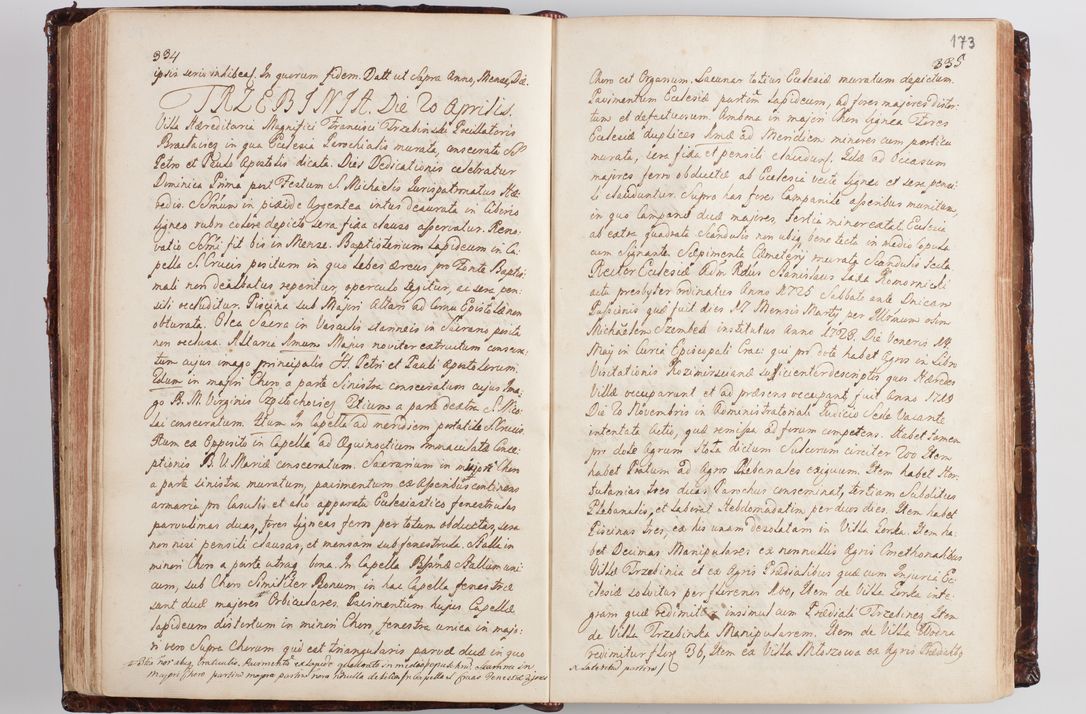 334
ipsis seris inhibeas. In quorum fidem. Datt ut Supra Anno, Mense, Die.
TRZEBINIA. Die 20 Aprilis
Villa Hæreditaria Magnifici Francisci Trzebinski Pocillatoris
in qua Ecclesia Parochialis murata, consecrata SS
Petro et Paulo Apostolis dicata. Dies Dedicationis celebratur
Dominica Prima post Festum S. Michaelis Iurispatronatus Hæ-
redis. SSmum in pixide Argentea intus deaurata in Ciborio
ligneo rubro colore depicto sera fida clauso asservatur. Reno-
vatio SSmi fit bis in Mense. Baptisterium lapideum in Ca-
pella S. Crucis positum in quo lebes æreus, pro Fonte Baptis-
mali non dealbatus reperitur, operculo tegitur, ac sera pen-
sili occluditur. Piscina sub Majori Altari ad Cornu Epistolæ non
obturata. Olea Sacra in Vasculis stanneis in Sacrario posita
non occlusa. Altaria Imum Majus noviter extructum consecra-
tum cujus imago principalis SS. Petri et Pauli Apostolorum.
2dum in majori Choro a parte Sinistra consecratum cujus Ima-
go B. M. Virginis Częstochoviens. 3tium a parte dextra S. Nico-
lai consecratum. 4tum In Capella ad meridiem portatile S. Crucis.
5tum ex Opposito in Capella ad Æquinoctium Immaculatæ Conce-
ptionis B. V. Mariæ consecratum. Sacrarium in majori Choro
a parte sinistra muratum, pavimentum ex Asseribus continens
armaria pro Casulis et alio apparatu Ecclesiastico fenestrulas
parvulinas duas, fores ligneas ferro per totum obductas, sera
non nisi pensili clausas, et mensam sub fenestrula. Stalla in
minori Choro a parte utraq bina. In Capella Stallum uni-
cum, sub Choro Similiter Bonum in hac Capella fenestræ
sunt duæ majores Orbiculares. Pavimentum hujus Capellæ
lapideum distortum in minori Choro, fenestra unica in majo-
ri vero Supra Chorum quæ est triangularis parvæ duæ in quo

173
335
Choro est Organum. Lacunar totius Ecclesiæ muratum depictum.
Pavimentum Ecclesiæ partim lapideum, ad fores majores distor-
tum et defectuosum. Ambona in majori Choro lignea Fores
Ecclesiæ duplices Imæ ad Meridiem minores cum porticu
murata, sera fida et pensili claudunt. 2dæ ad Occasum
majores ferro obductæ ab Ecclesia vecte ligneo et sera pensi-
li clauduntur. Supra has fores Campanile asseribus munitum,
in quo Campanæ duæ majores, tertia minor extat. Ecclesia
ab extra quadrate Scandulis non ubiq bene tecta in medio Copula
cum Signante. Sæpimenta Cæmeterij murata Scandulis tecta.
Rector Ecclesiæ Adm Rdus Stanislaus
presbyter ordinatus Anno 1725 Sabbato ante Dnicam
Passionis quæ fuit dies 17 Mensis Martij, per Illmum olim
Michaelem Szembek institutus Anno 1728. Die Veneris 14
Maij in Curia Episcopali Crac: qui pro dote habet Agros in Libro
Visitationis sufficienter descriptos quos Hæredes
Villæ occuparunt et ad præsens occupant, fuit Anno 1719
Die 20 Novembris in Administratoriali Judicio Sede Vacante
intentata Actio, quæ remissa ad forum competens. Habet tamen
pro dote Agrum dictum Sulcorum circiter 200 Item
habet Pratum ad Agros Plebanales exiguum. Item habet Hor-
tulanias tres duas Parochus conseminat, tertiam Subditus
Plebanalis, et laborat Hebdomadatim per duos dies. Item habet
Piscinas tres, ex his unam desolatam in Villa Item ha-
bet Decimas Manipulares ex nonnullis Agris Cmethonalibus
Villæ Trzebinia et ex Agris Prædialibus quæ cum Injuria Ec-
clesiæ solvitur per florenis 100, Item de Villa inte-
gram quæ redimitur insimul cum Prædiali Item
de Villa Trzebinka Manipularem. Item de Villa Wodna
redimitur flor 36, Item ex Villa Młoszowa ex Agris